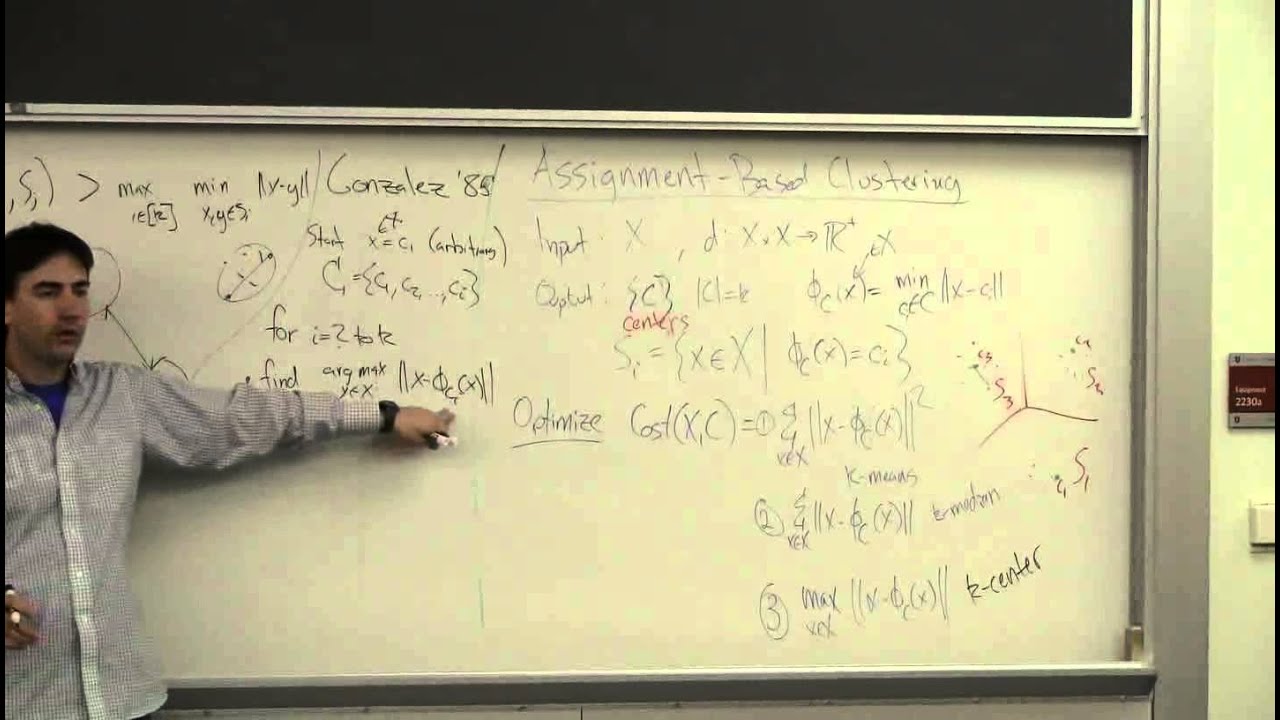 , S_i) > max_{i∈[k]} min_{x,y∈S_i} ||x-y||
Gonzalez '85
Start x = c_1 (arbitrary)
∈X
C_i = {c_1, c_2, ..., c_i}
for i=2 to k
• find argmax_{x∈X} ||x-ϕ_{C_i}(x)||
Assignment-Based Clustering
Input: X , d: X x X → ℝ^+
Output: {C} |C|=k ϕ_C(x) = min_{c_i∈C} ||x-c_i||
∈X
centers
S_i = {x∈X | ϕ_C(x) = c_i}
Optimize Cost(X,C) = ① Σ_{x∈X} ||x-ϕ_C(x)||^2
k-means
② Σ_{x∈X} ||x-ϕ_C(x)|| k-median
③ max_{x∈X} ||x-ϕ_C(x)|| k-center
c_3
S_3
c_2
S_2
c_1 S_1
Equipment
2230a